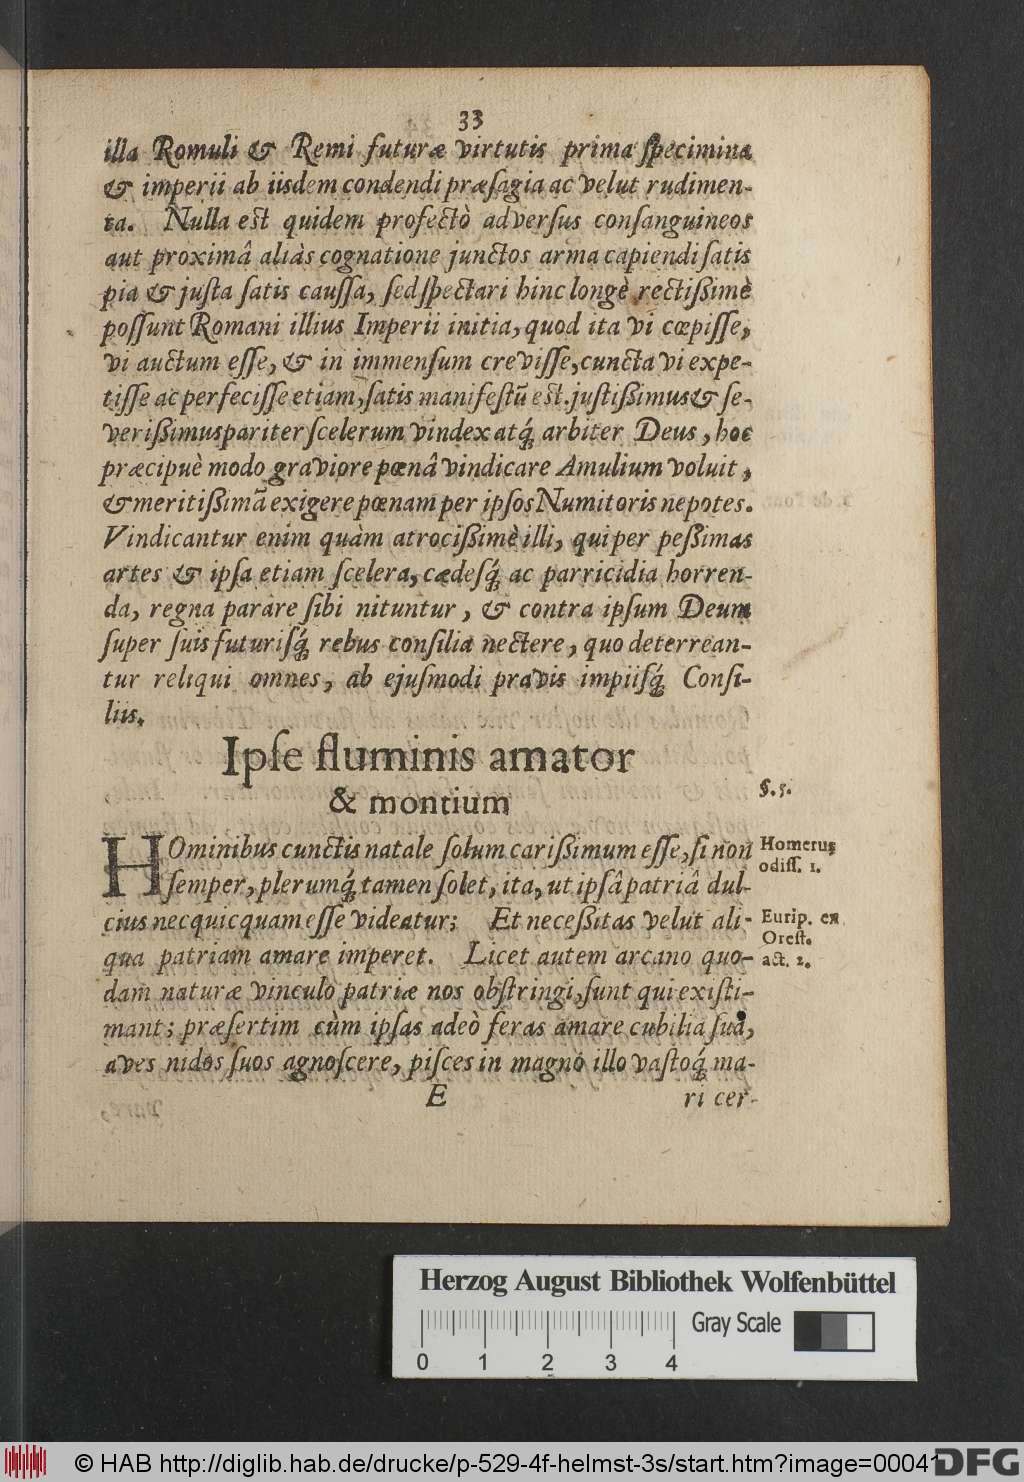 33
illa Romuli & Remi futuræ virtutis prima ſpecimina
& imperii ab iisdem condendi præſagia ac velut rudimen-
ta. Nulla eſt quidem profectò adverſus conſanguineos
aut proximâ aliàs cognatione junctos arma capiendi ſatis
pia & juſta ſatis cauſſa, ſed ſpectari hinc longè rectißimè
poſſunt Romani illius Imperii initia, quod ita vi cœpiſſe,
vi auctum eſſe, & in immenſum creviſſe, cuncta vi expe-
tiſſe ac perfeciſſe etiam, ſatis manifeſtũ eſt. juſtißimus & ſe-
verißimus pariter ſcelerum vindex atq́; arbiter Deus, hoc
præcipuè modo graviore pœnâ vindicare Amulium voluit,
& meritißimã exigere pœnam per ipſos Numitoris nepotes.
Vindicantur enim quàm atrocißimè illi, qui per peßimas
artes & ipſa etiam ſcelera, cædeſq́; ac parricidia horren-
da, regna parare ſibi nituntur, & contra ipſum Deum
ſuper ſuis futuriſq́; rebus conſilia nectere, quo deterrean-
tur reliqui omnes, ab ejuſmodi pravis impiiſq́; Conſi-
liis.
Ipſe fluminis amator
& montium
§. 5.
HOminibus cunctis natale ſolum carißimum eſſe, ſi non
Homerus
odiſſ. 1.
ſemper, plerumq́; tamen ſolet, ita, ut ipſâ patriâ dul-
cius nec quicquam eſſe videatur; Et neceßitas velut ali-
Eurip. ex
Oreſt.
act. 2.
qua patriam amare imperet. Licet autem arcano quo-
dam naturæ vinculo patriæ nos obſtringi, ſunt qui exiſti-
mant; præſertim cùm ipſas adeò feras amare cubilia ſua,
aves nidos ſuos agnoſcere, piſces in magno illo vaſtoq́; ma-
E
ri cer-
Herzog August Bibliothek Wolfenbüttel
0 1 2 3 4
Gray Scale
© HAB http://diglib.hab.de/drucke/p-529-4f-helmst-3s/start.htm?image=00041
DFG